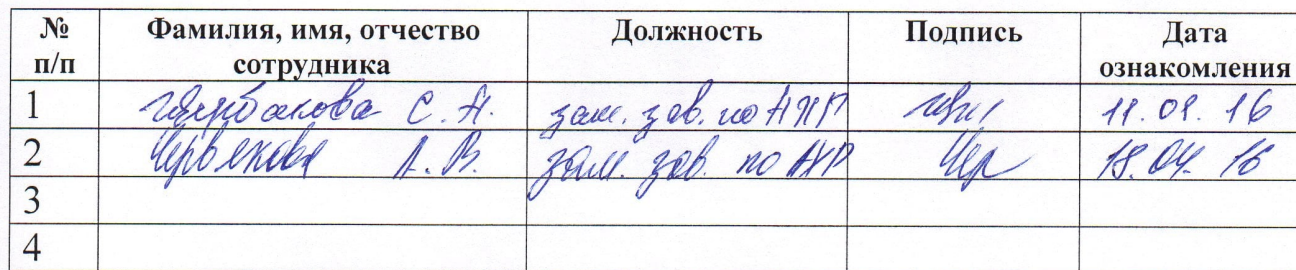 № п/п Фамилия, имя, отчество сотрудника Должность Подпись Дата ознакомления
1 Щербакова С. А. зам. зав. по АХР 11.01.16
2 Червякова Л. В. зам. зав. по АХР Чер 18.04.16
3
4